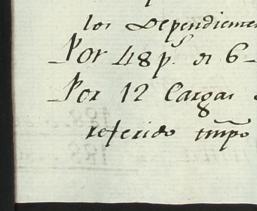 los Dependiente
Por 48 p.s de 6
Por 12 Cargas
referido tmpo